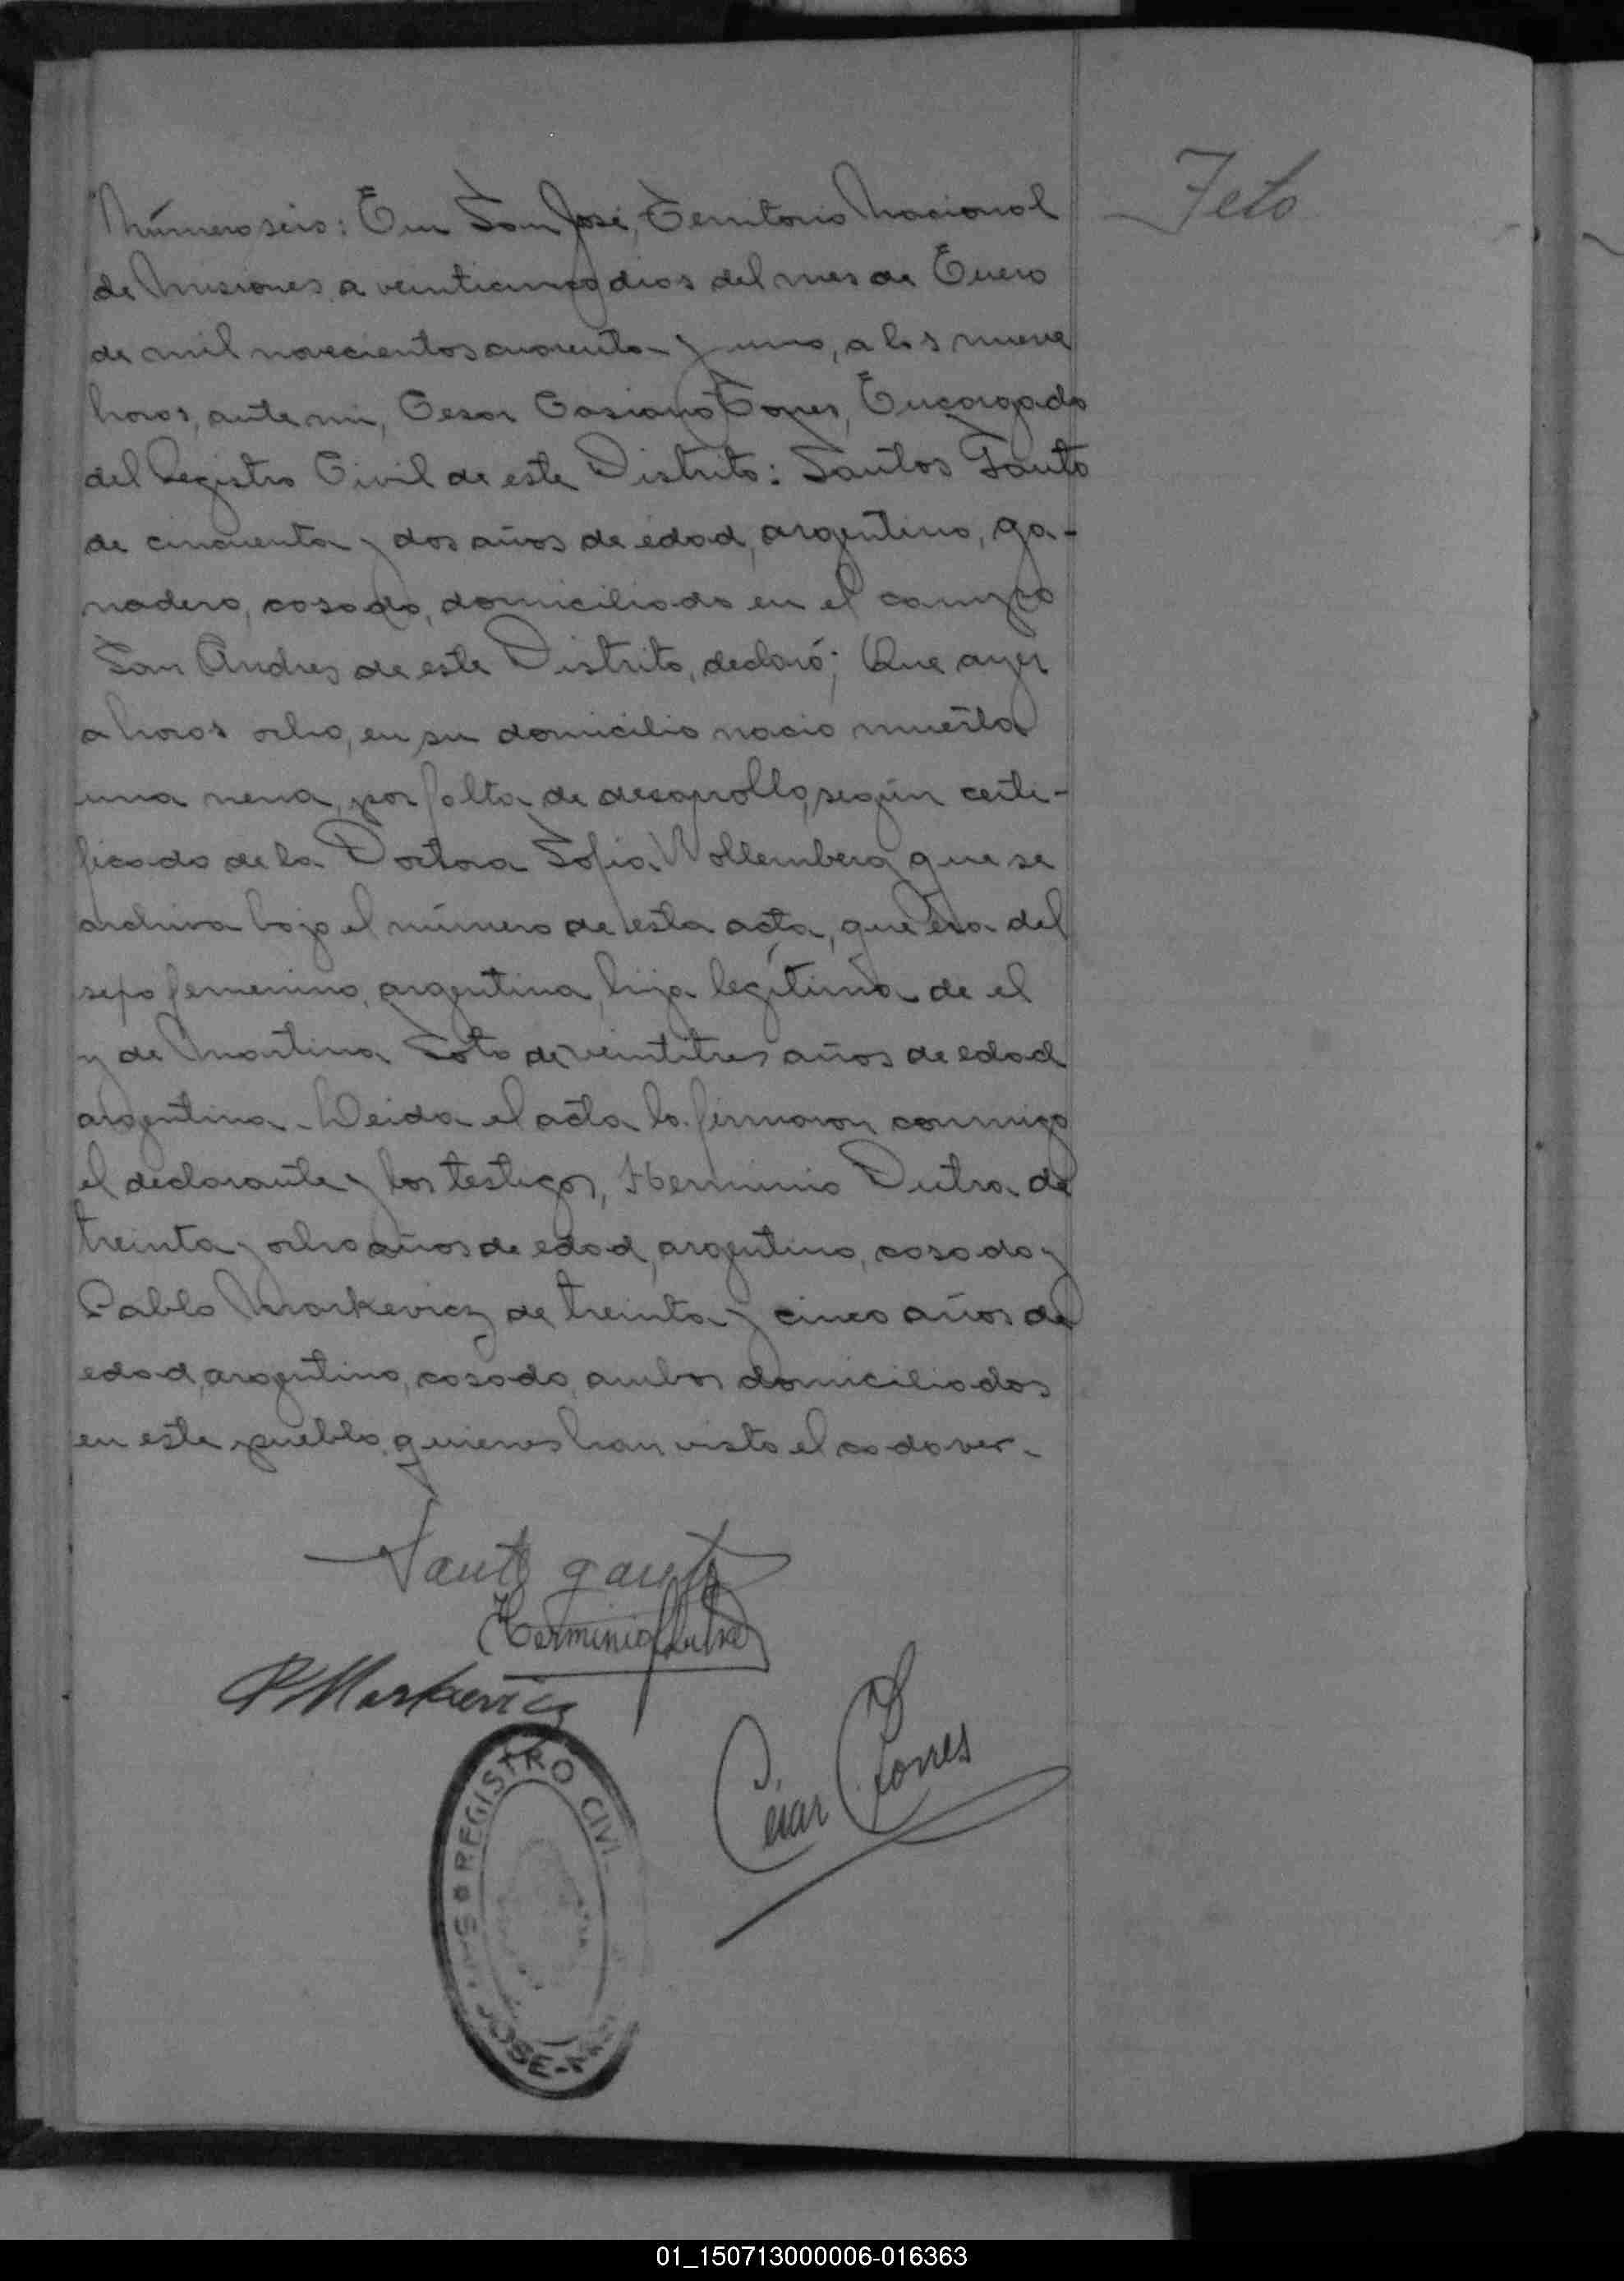 Número seis: En San José, Territorio Nacional
Feto
de Misiones, a veinticinco dias del mes de Enero
de mil novecientos cuarenta y uno, a las nueve
horas, ante mi, Cesar Casiano Torres, Encargado
del Registro Civil de este Distrito: Santos Gauto
de cincuenta y dos años de edad, argentino, ga-
nadero, casado, domiciliado en el campo
San Andres de este Distrito, declaró; Que ayer
a horas ocho, en su domicilio nacio muerta
una nena, por falta de desarrollo, según certi-
ficado de la Doctora Sofia Wollemberg que se
archiva bajo el número de esta acta, que era del
sexo femenino, argentina, hija legítima de el
y de Martina Soto de veintitres años de edad
argentina. Leida el acta la firmaron conmigo
el declarante y los testigos, Herminio Dutra de
treinta y ocho años de edad, argentino, casado y
Pablo Markevicz de treinta y cinco años de
edad, argentino, casado, ambos domiciliados
en este pueblo, quienes han visto el cadaver.
Santo gauto
Herminio Dutra
P Markievicz
Cesar Torres
REGISTRO CIVIL
JOSE
01_150713000006-016363